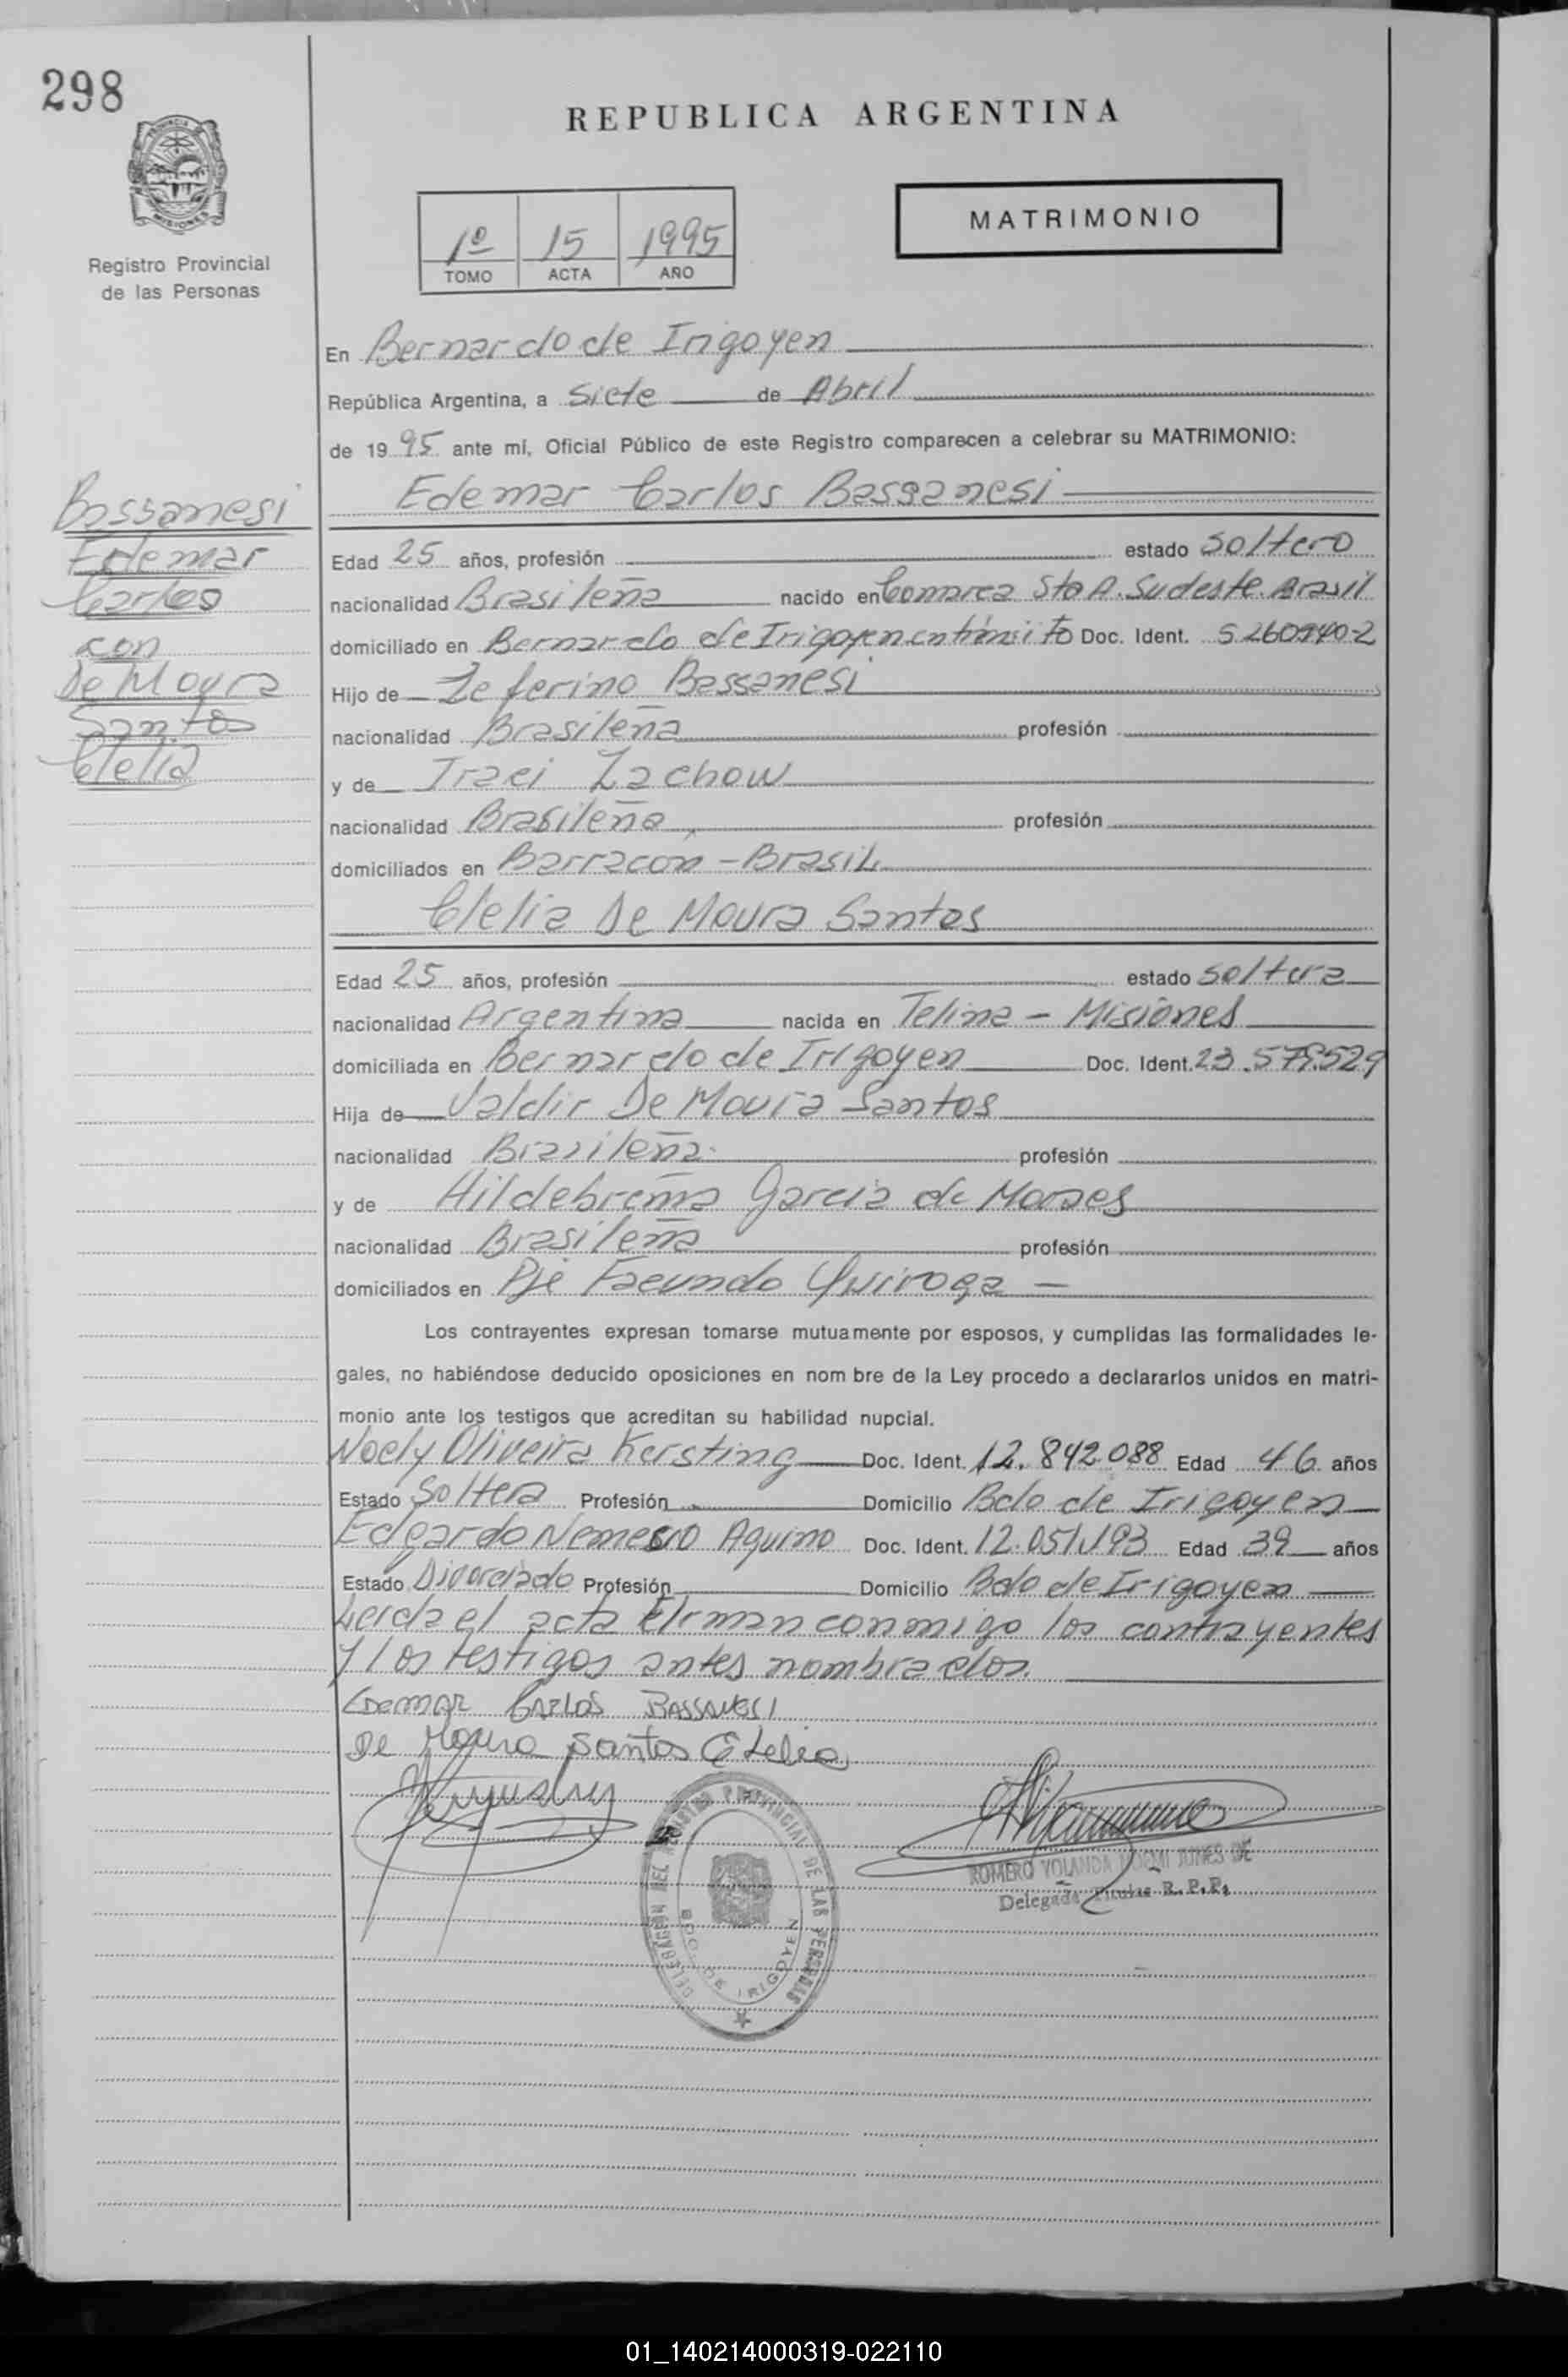 298
REPUBLICA ARGENTINA
MISIONES
Registro Provincial
de las Personas
1º 15 1995
TOMO ACTA AÑO
MATRIMONIO
En Bernardo de Irigoyen
República Argentina, a Siete de Abril
de 1995 ante mí, Oficial Público de este Registro comparecen a celebrar su MATRIMONIO:
Edemar Carlos Bassanesi
Bassanesi
Edemar
Carlos
con
De Moura
Santos
Clelia
Edad 25 años, profesión estado Soltero
nacionalidad Brasileña nacido en Comarca Sto A. Sudeste. Brasil
domiciliado en Bernardo de Irigoyen en tránsito Doc. Ident.
Hijo de Zeferino Bassanesi
nacionalidad Brasileña profesión
y de Iraci Zachow
nacionalidad Brasileña profesión
domiciliados en Barracón - Brasil
Clelia De Moura Santos
Edad 25 años, profesión estado Soltera
nacionalidad Argentina nacida en - Misiones
domiciliada en Bernardo de Irigoyen Doc. Ident.
Hija de Valdir De Moura Santos
nacionalidad Brasileña profesión
y de Garcia de Moraes
nacionalidad Brasileña profesión
domiciliados en Pje Facundo Quiroga -
Los contrayentes expresan tomarse mutuamente por esposos, y cumplidas las formalidades le-
gales, no habiéndose deducido oposiciones en nom bre de la Ley procedo a declararlos unidos en matri-
monio ante los testigos que acreditan su habilidad nupcial.
Noely Oliveira Kersting Doc. Ident. 12.842.088 Edad 46 años
Estado Soltera Profesión Domicilio Bdo de Irigoyen
Edgardo Nemesio Aquino Doc. Ident. 12.051.193 Edad 39 años
Estado Divorciado Profesión Domicilio Bdo de Irigoyen
Leida el acta firman conmigo los contrayentes
y los testigos antes nombrados.
Edemar Carlos Bassanesi
De Moura Santos Clelia
DELEGACION DEL REGISTRO PROVINCIAL DE LAS PERSONAS
BDO. DE IRIGOYEN
ROMERO YOLANDA NOEMI JUNES DE
Delegada Titular R. P. P.
01_140214000319-022110